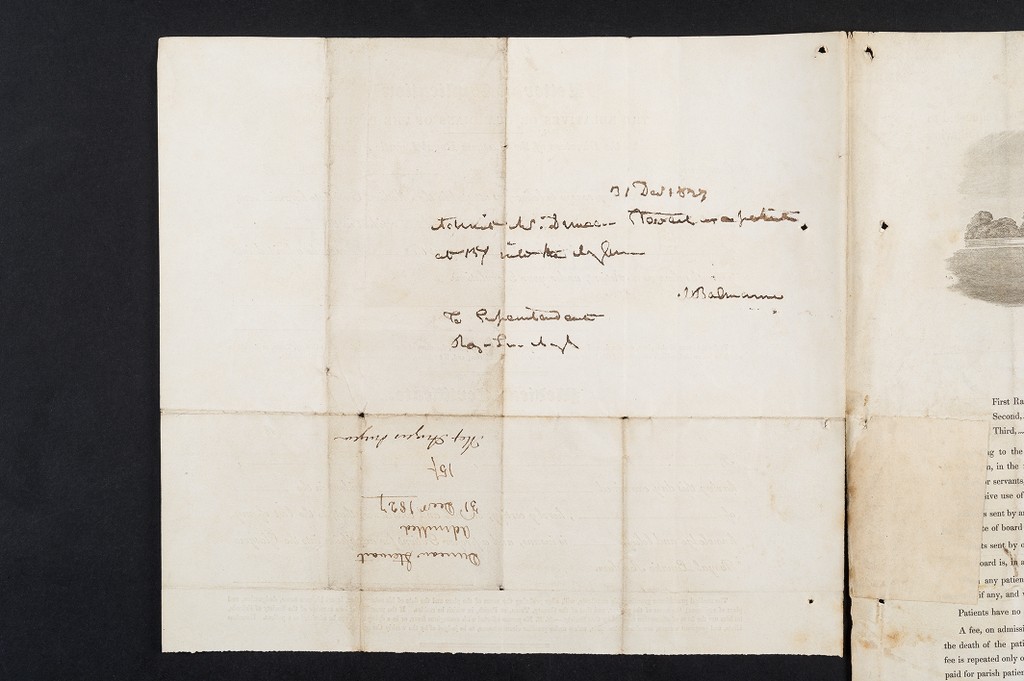 31 Decr 1827
Admit Mr. Duncan Stewart as a patient
at 15/ into the Asylum
J Balmanno
To Superintendant
Duncan Stewart
Admitted
31 Decr 1827
15/
First Ra
Second,
Third,
g to the
n, in the
or servants,
ive use of
s sent by
e of board
ts sent by
oard is, in a
any patien
if any, and
Patients have no
A fee, on admissi
the death of the pati
fee is repeated only o
paid for parish patien